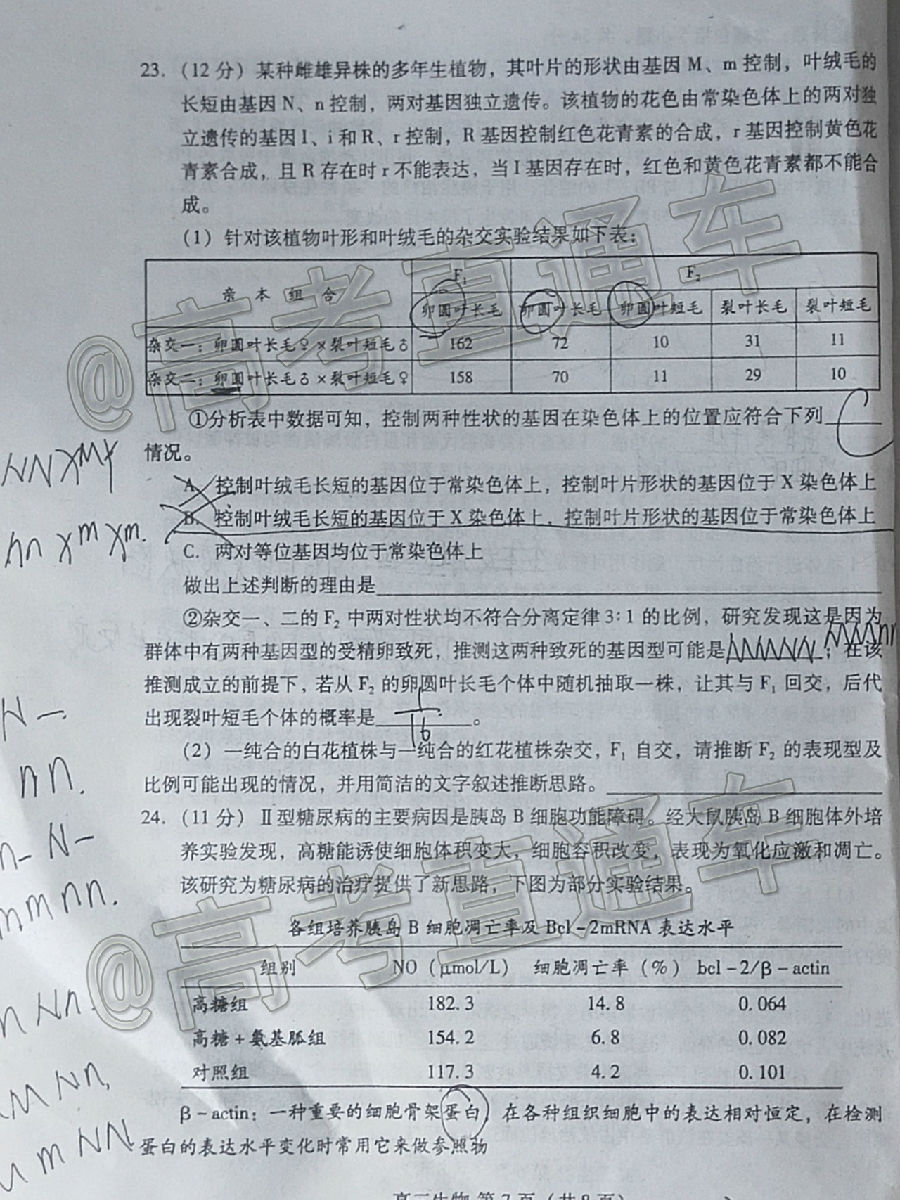 23.（12分）某种雌雄异株的多年生植物，其叶片的形状由基因M、m控制，叶绒毛的
长短由基因N、n控制，两对基因独立遗传。该植物的花色由常染色体上的两对独
立遗传的基因I、i和R、r控制，R基因控制红色花青素的合成，r基因控制黄色花
青素合成，且R存在时r不能表达，当I基因存在时，红色和黄色花青素都不能合
成。
（1）针对该植物叶形和叶绒毛的杂交实验结果如下表：
亲本组合 F1 F2
卵圆叶长毛 卵圆叶长毛 卵圆叶短毛 裂叶长毛 裂叶短毛
杂交一：卵圆叶长毛♀×裂叶短毛♂ 162 72 10 31 11
杂交二：卵圆叶长毛♂×裂叶短毛♀ 158 70 11 29 10
①分析表中数据可知，控制两种性状的基因在染色体上的位置应符合下列 C
情况。
A. 控制叶绒毛长短的基因位于常染色体上，控制叶片形状的基因位于X染色体上
B. 控制叶绒毛长短的基因位于X染色体上，控制叶片形状的基因位于常染色体上
C. 两对等位基因均位于常染色体上
做出上述判断的理由是
②杂交一、二的F2中两对性状均不符合分离定律3:1的比例，研究发现这是因为
群体中有两种基因型的受精卵致死，推测这两种致死的基因型可能是；在该
推测成立的前提下，若从F2的卵圆叶长毛个体中随机抽取一株，让其与F1回交，后代
出现裂叶短毛个体的概率是 1/16 。
（2）一纯合的白花植株与一纯合的红花植株杂交，F1自交，请推断F2的表现型及
比例可能出现的情况，并用简洁的文字叙述推断思路。
24.（11分）Ⅱ型糖尿病的主要病因是胰岛B细胞功能障碍。经大鼠胰岛B细胞体外培
养实验发现，高糖能诱使细胞体积变大，细胞容积改变，表现为氧化应激和凋亡。
该研究为糖尿病的治疗提供了新思路，下图为部分实验结果。
各组培养胰岛B细胞凋亡率及Bcl-2mRNA表达水平
组别 NO（μmol/L） 细胞凋亡率（%） bcl-2/β-actin
高糖组 182.3 14.8 0.064
高糖+氨基胍组 154.2 6.8 0.082
对照组 117.3 4.2 0.101
β-actin：一种重要的细胞骨架蛋白，在各种组织细胞中的表达相对恒定，在检测
蛋白的表达水平变化时常用它来做参照物
高三生物 第7页（共8页）
@高考直通车
@高考直通车
N-
nn.